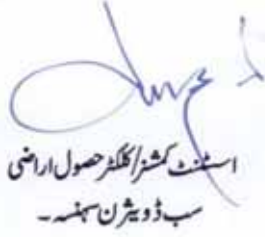 اسسٹنٹ کمشنر/کلکٹر حصول اراضی
سب ڈویژن سہنسہ۔